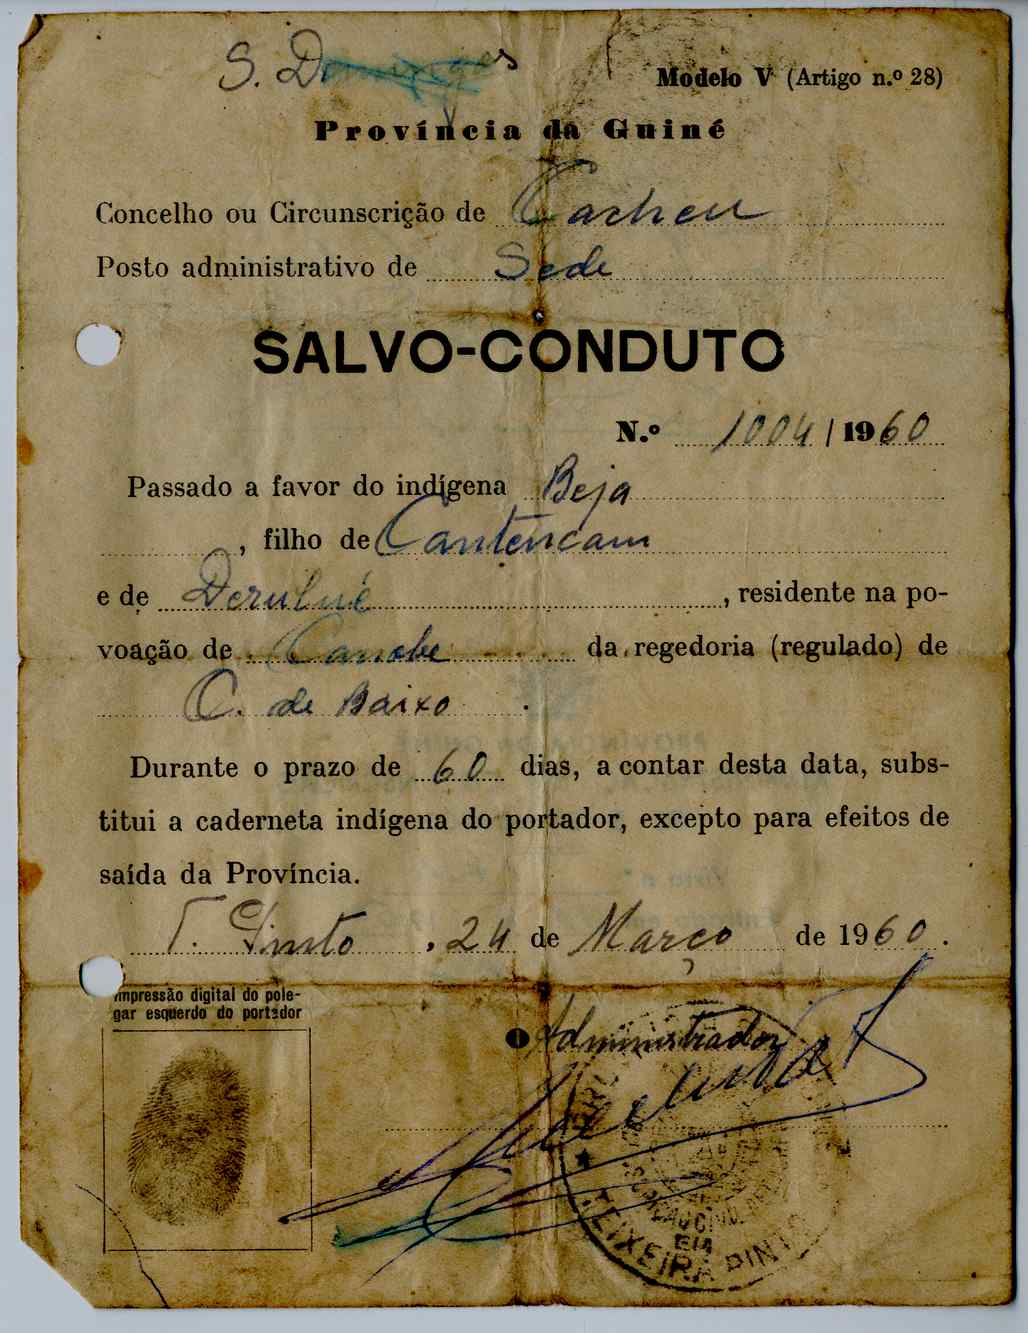 S. Domingos
Modelo V (Artigo n.º 28)
Província da Guiné
Concelho ou Circunscrição de Cacheu
Posto administrativo de Sede
SALVO-CONDUTO
N.º 1004/1960
Passado a favor do indígena Beja
, filho de Cantencam
e de , residente na po-
voação de Canobe da regedoria (regulado) de
C. de Baixo .
Durante o prazo de 60 dias, a contar desta data, subs-
titui a caderneta indígena do portador, excepto para efeitos de
saída da Província.
T. Pinto , 24 de Março de 1960.
Impressão digital do pole-
gar esquerdo do portador
O Administrador
TEIXEIRA PINTO